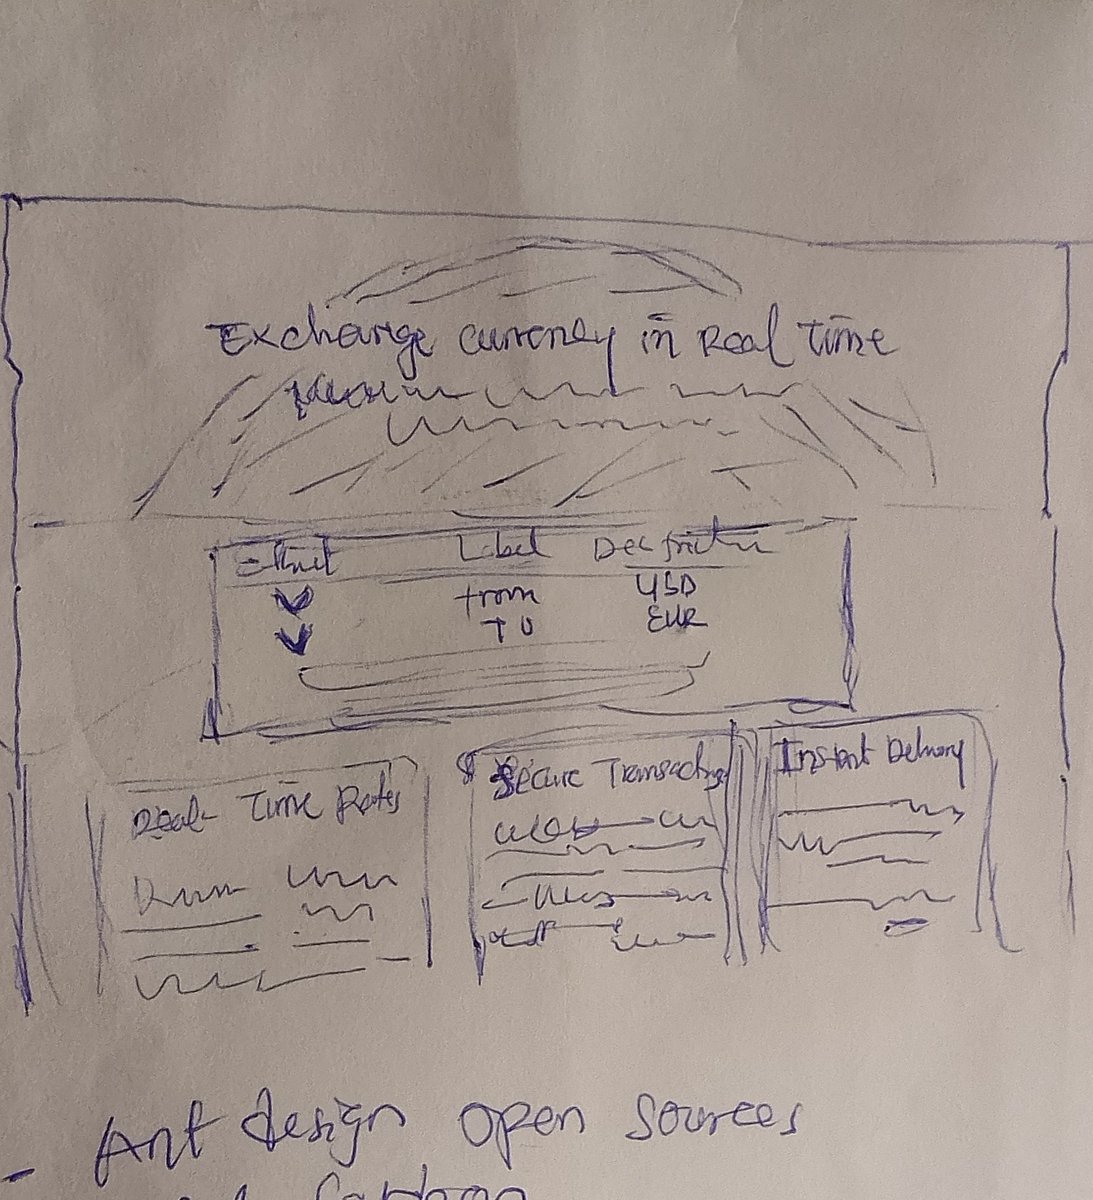 Exchange currency in Real Time
Label
from USD
TO EUR
Real-Time Rates
Secure
Instant Delivery
Ant design open sources